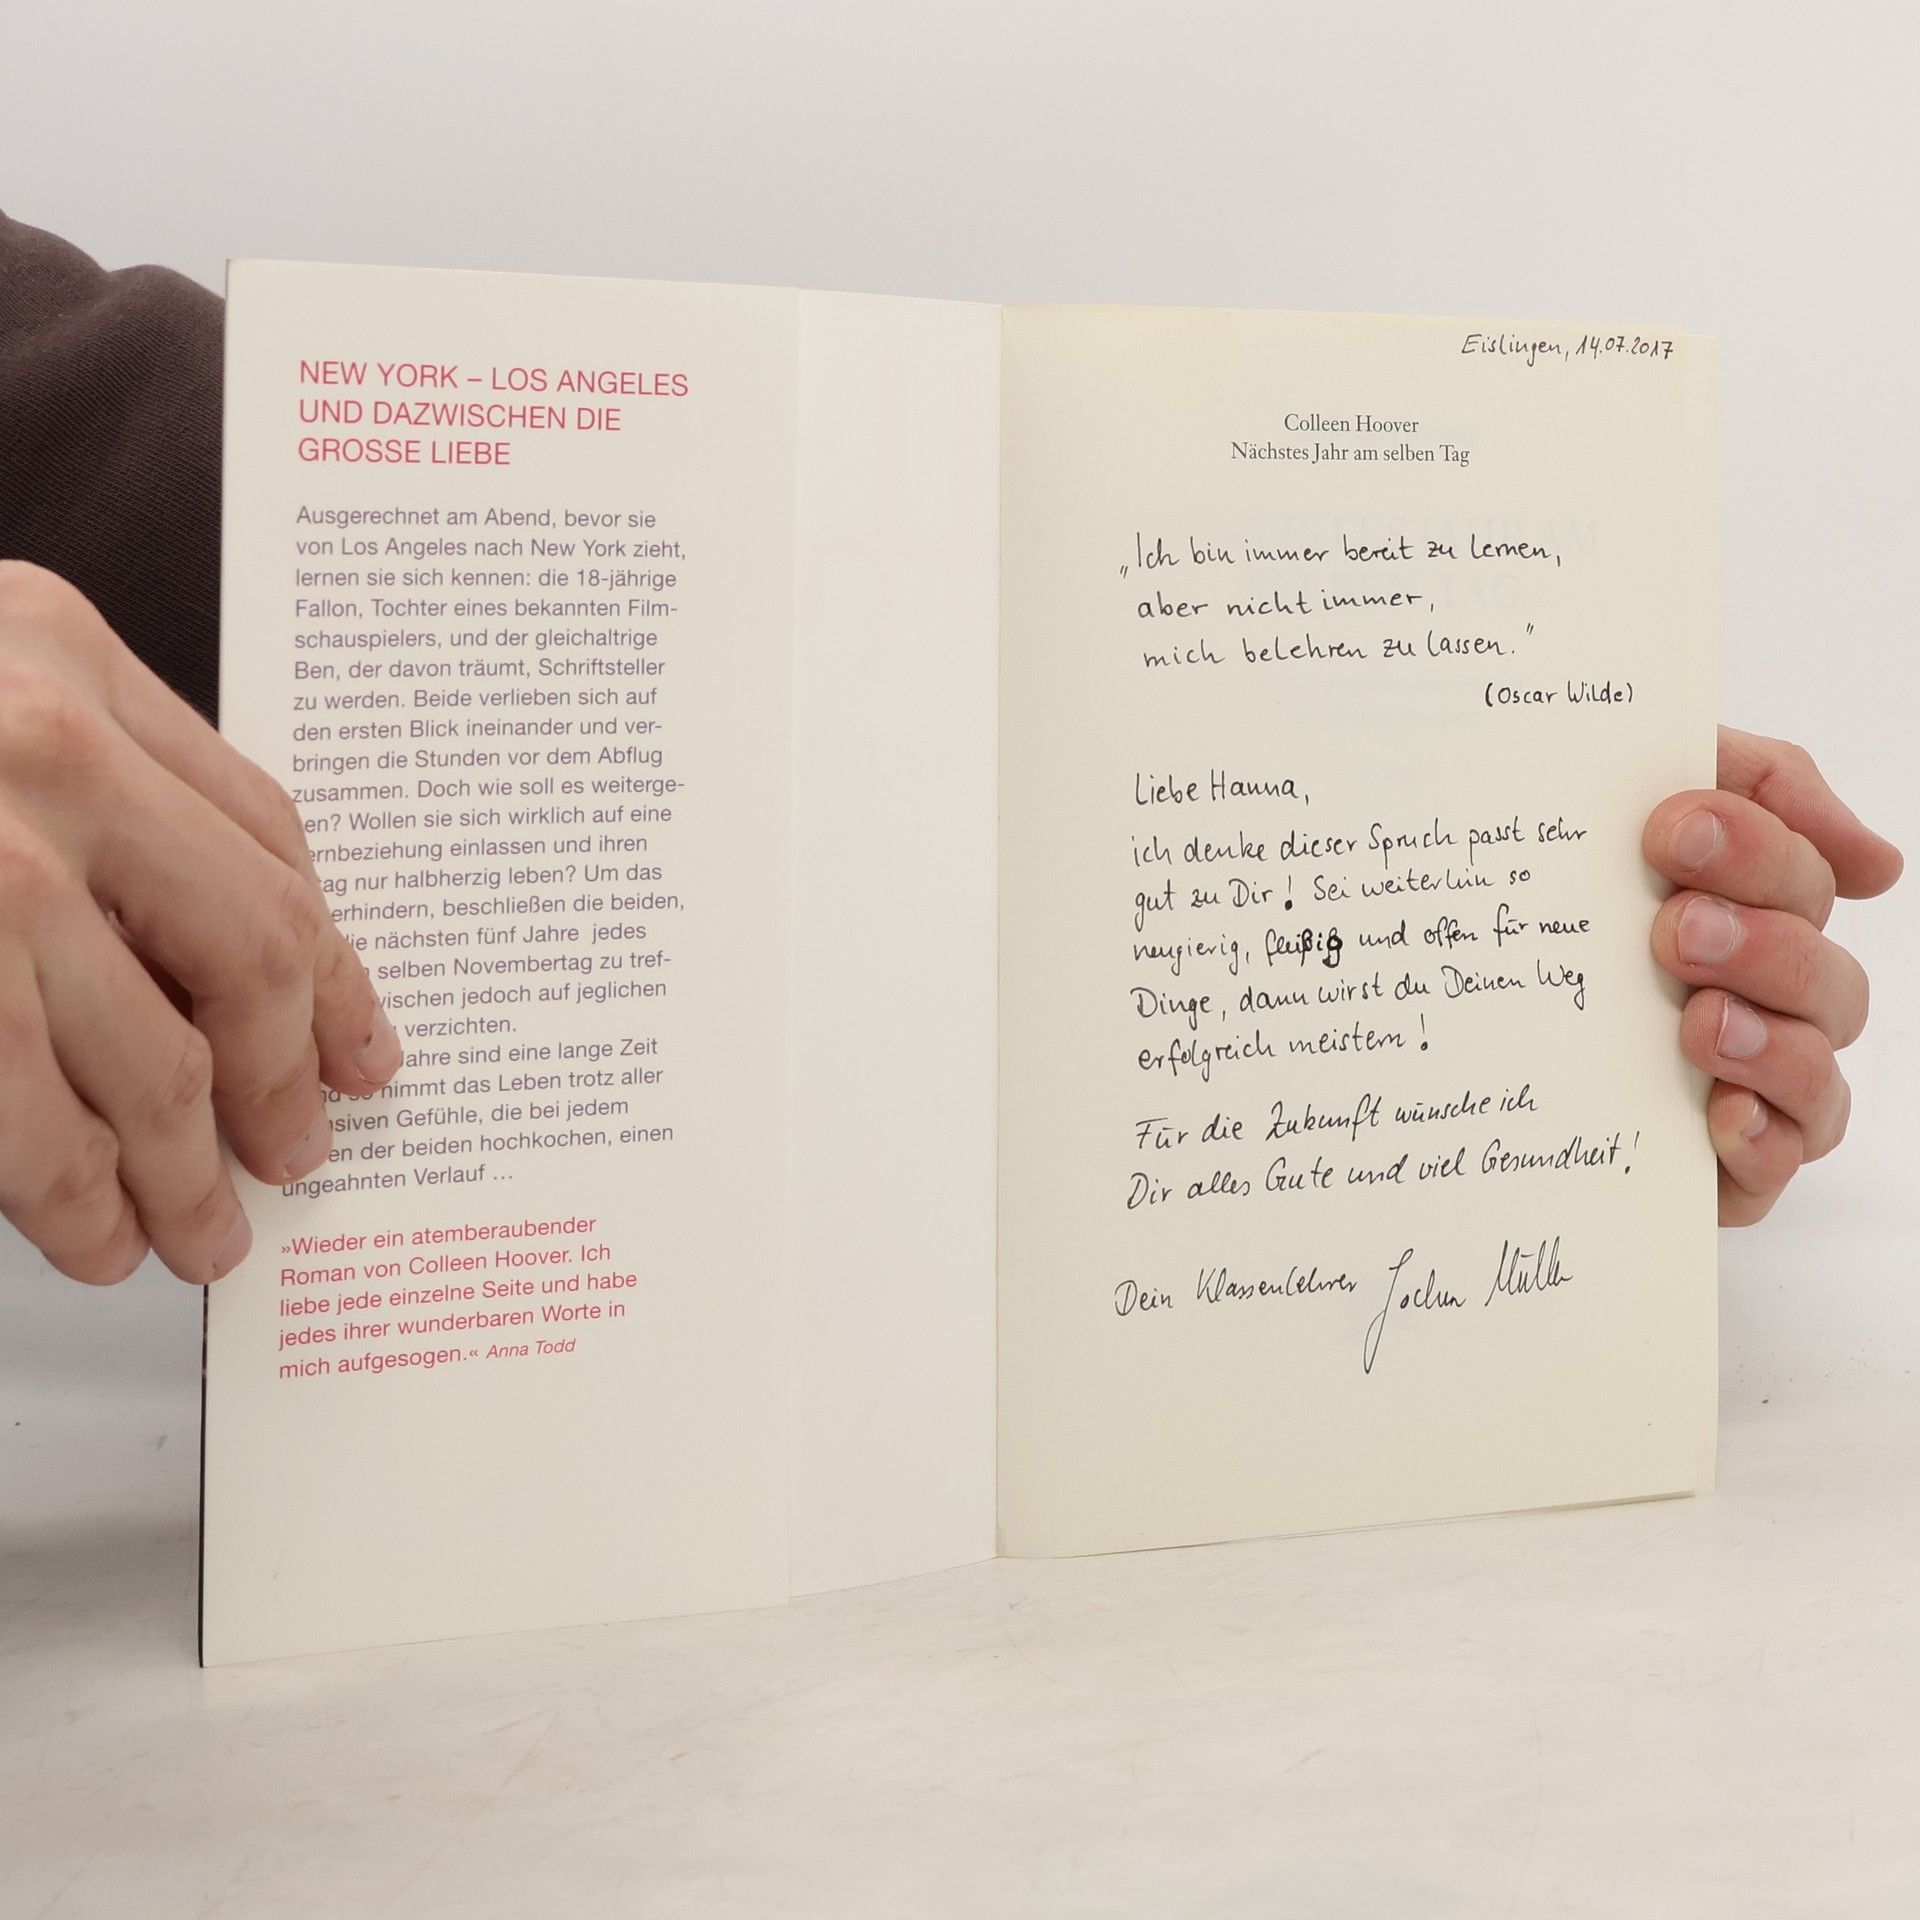 NEW YORK – LOS ANGELES
UND DAZWISCHEN DIE
GROSSE LIEBE
Ausgerechnet am Abend, bevor sie
von Los Angeles nach New York zieht,
lernen sie sich kennen: die 18-jährige
Fallon, Tochter eines bekannten Film-
schauspielers, und der gleichaltrige
Ben, der davon träumt, Schriftsteller
zu werden. Beide verlieben sich auf
den ersten Blick ineinander und ver-
bringen die Stunden vor dem Abflug
zusammen. Doch wie soll es weiterge-
en? Wollen sie sich wirklich auf eine
ernbeziehung einlassen und ihren
tag nur halbherzig leben? Um das
erhindern, beschließen die beiden,
ie nächsten fünf Jahre jedes
selben Novembertag zu tref-
wischen jedoch auf jeglichen
verzichten.
Jahre sind eine lange Zeit
nd so nimmt das Leben trotz aller
nsiven Gefühle, die bei jedem
en der beiden hochkochen, einen
ungeahnten Verlauf ...
»Wieder ein atemberaubender
Roman von Colleen Hoover. Ich
liebe jede einzelne Seite und habe
jedes ihrer wunderbaren Worte in
mich aufgesogen.« Anna Todd
Eislingen, 14.07.2017
Colleen Hoover
Nächstes Jahr am selben Tag
„Ich bin immer bereit zu lernen,
aber nicht immer,
mich belehren zu lassen."
(Oscar Wilde)
Liebe Hanna,
ich denke dieser Spruch passt sehr
gut zu Dir! Sei weiterhin so
neugierig, fleißig und offen für neue
Dinge, dann wirst du Deinen Weg
erfolgreich meistern!
Für die Zukunft wünsche ich
Dir alles Gute und viel Gesundheit!
Dein Klassenlehrer Jochen Müller